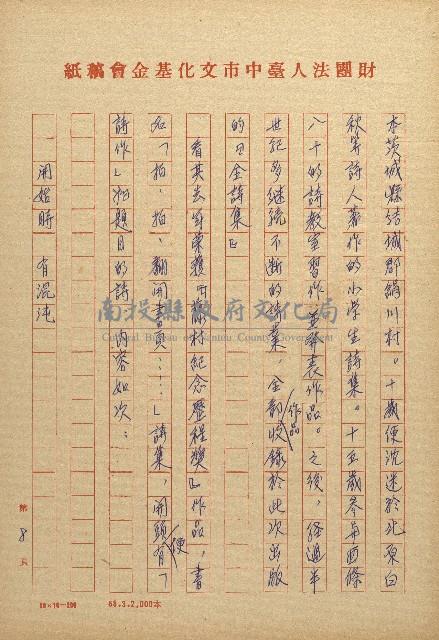 財團法人臺中市文化基金會稿紙
本茨城縣結城郡絹川村。十歲便沈迷於北原白
秋等詩人著作的小学生詩集。十五歲參與西條
八十的詩教室習作並發表作品。之後，経過半
世紀多継続不断的詩業，全部收錄於此次出版
作品
的日全詩集』
看其去年榮獲『藤村紀念歷程獎』作品，書
名「拍、拍、翻開書頁……」詩集，開頭有「
便
詩作」為題目的詩，內容如次：
開始時 有混沌
南投縣政府文化局
Cultural Bureau of Nantou County Government
第 8 頁
68.3.2,000本